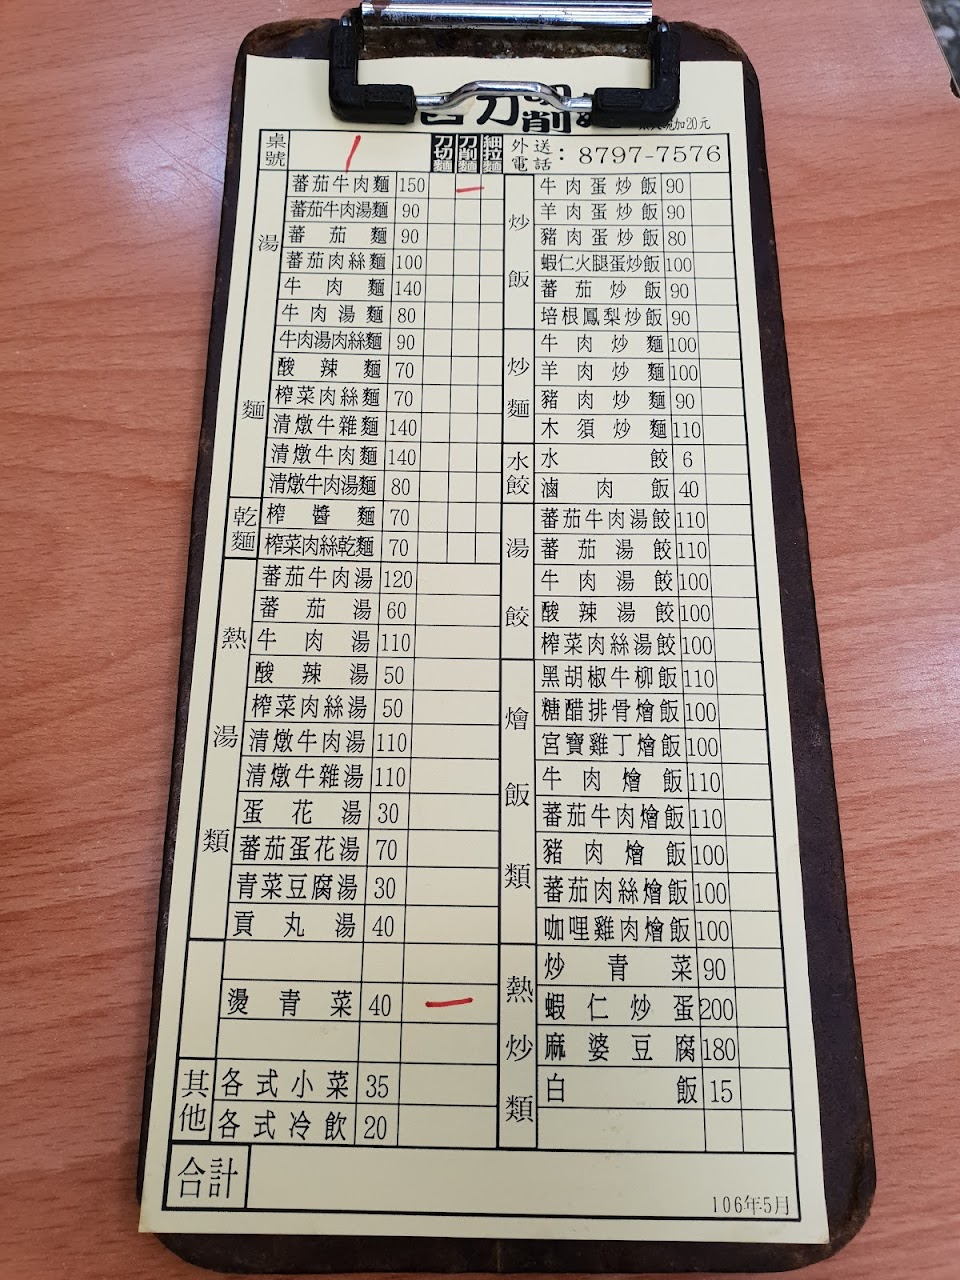 刀削
加20元
桌號 1 刀切麵 刀削麵 細拉麵
外送電話：8797-7576
湯麵
蕃茄牛肉麵 150 一
蕃茄牛肉湯麵 90
蕃茄麵 90
蕃茄肉絲麵 100
牛肉麵 140
牛肉湯麵 80
牛肉湯肉絲麵 90
酸辣麵 70
榨菜肉絲麵 70
清燉牛雜麵 140
清燉牛肉麵 140
清燉牛肉湯麵 80
乾麵
榨醬麵 70
榨菜肉絲乾麵 70
熱湯類
蕃茄牛肉湯 120
蕃茄湯 60
牛肉湯 110
酸辣湯 50
榨菜肉絲湯 50
清燉牛肉湯 110
清燉牛雜湯 110
蛋花湯 30
蕃茄蛋花湯 70
青菜豆腐湯 30
貢丸湯 40
燙青菜 40 一
其他
各式小菜 35
各式冷飲 20
炒飯
牛肉蛋炒飯 90
羊肉蛋炒飯 90
豬肉蛋炒飯 80
蝦仁火腿蛋炒飯 100
蕃茄炒飯 90
培根鳳梨炒飯 90
炒麵
牛肉炒麵 100
羊肉炒麵 100
豬肉炒麵 90
木須炒麵 110
水餃
水餃 6
滷肉飯 40
湯餃
蕃茄牛肉湯餃 110
蕃茄湯餃 110
牛肉湯餃 100
酸辣湯餃 100
榨菜肉絲湯餃 100
燴飯類
黑胡椒牛柳飯 110
糖醋排骨燴飯 100
宮寶雞丁燴飯 100
牛肉燴飯 110
蕃茄牛肉燴飯 110
豬肉燴飯 100
蕃茄肉絲燴飯 100
咖哩雞肉燴飯 100
熱炒類
炒青菜 90
蝦仁炒蛋 200
麻婆豆腐 180
白飯 15
合計
106年5月